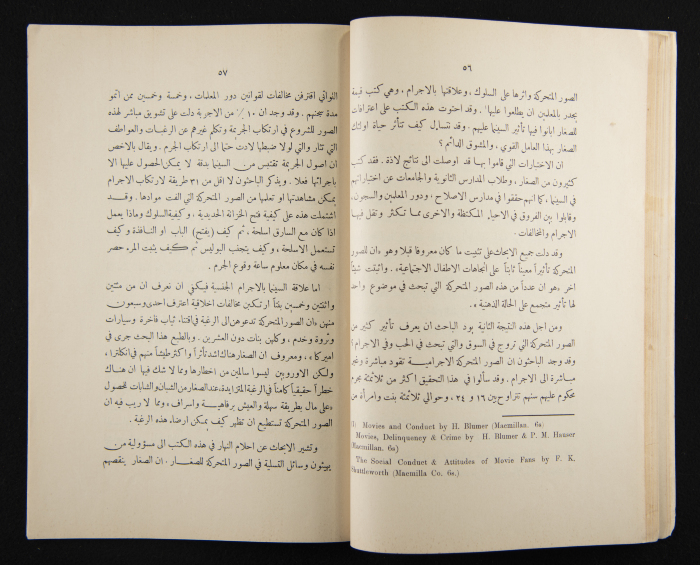 ٥٦
الصور المتحركة واثرها على السلوك ، وعلاقتها بالاجرام ، وهي كتب قيمة
يجدر بالمعلمين ان يطلعوا عليها . وقد احتوت هذه الكتب على اعترافات
للصغار ابانوا فيها تأثير السينما عليهم . وقد نتساءل كيف تتأثر حياة اولئك
الصغار بهذا العامل القوي ، والمشوق الدائم ؟
ان الاختبارات التي قاموا بها قد اوصلت الى نتائج لاذة . فقد كتب
كثيرون من الصغار ، وطلاب المدارس الثانوية والجامعات عن اختباراتهم
في السينما ، كما انهم حققوا في مدارس الاصلاح ، ودور المعلمين والسجون ،
وقابلوا بين الفروق في الاحياء المكتظة والاخرى مما تكثر وتقل فيها
الاجرام والمخالفات .
وقد دلت جميع الابحاث على تثبيت ما كان معروفا قبلا وهو «ان للصور
المتحركة تأثيراً معيناً ثابتاً على اتجاهات الاطفال الاجتماعية» . واثبتت شيئاً
آخر «هو ان عدداً من هذه الصور المتحركة التي تبحث في موضوع واحد
لها تأثير متجمع على الحالة الذهنية» .
ومن اجل هذه النتيجة الثانية يود الباحث ان يعرف تأثير كثير من
الصور المتحركة التي تروج في السوق والتي تبحث في الحب وفي الاجرام ؟
وقد وجد الباحثون ان الصور المتحركة الاجرامية تقود مباشرة وغير
مباشرة الى الاجرام . وقد سألوا في هذا التحقيق اكثر من ثلاثمئة مجرم
محكوم عليهم سنهم تتراوح بين ١٦ و ٢٤ ، وحوالي ثلاثمئة بنت وامرأة من
(1) Movies and Conduct by H. Blumer (Macmillan. 6s)
Movies, Delinquency & Crime by H. Blumer & P. M. Hauser
(Macmillan. 6s)
The Social Conduct & Attitudes of Movie Fans by F. K.
Shuttleworth (Macmilla Co. 6s.)
٥٧
اللواتي اقترفن مخالفات لقوانين دور المعلمات ، وخمسة وخمسين ممن اتموا
مدة سجنهم . وقد وجد ان ١٠٪ من الاجرية دلت على تشويق مباشر لهذه
الصور للشروع في ارتكاب الجريمة وتكلم غيرهم عن الرغبات والعواطف
التي تثار والتي لولا ضبطها لادت حتما الى ارتكاب الجرم . ويقال بالاخص
ان اصول الجريمة تقتبس من السينما بدقة لا يمكن الحصول عليها الا
باجرائها فعلا . ويذكر الباحثون لا اقل من ٣١ طريقة لارتكاب الاجرام
يمكن مشاهدتها او تعلمها من الصور المتحركة التي الفت موادها . وقد
اشتملت هذه على كيفية فتح الخزانة الحديدية ، وكيفية السلوك وماذا يعمل
اذا كان مع السارق اسلحة ، ثم كيف (يفتح) الباب او النافذة وكيف
تستعمل الاسلحة ، وكيف يتجنب البوليس ثم كيف يثبت المرء حصر
نفسه في مكان معلوم ساعة وقوع الجرم .
اما علاقة السينما بالاجرام الجنسية فيكفي ان نعرف ان من مئتين
واثنتين وخمسين بنتاً ارتكبن مخالفات اخلاقية اعترف احدى وسبعون
منهن «ان الصور المتحركة تدعوهن الى الرغبة في اقتناء ثياب فاخرة وسيارات
وثروة وخدم ، وكلهن بنات دون العشرين . وبالطبع هذا البحث جرى في
اميركا» ، ومعروف ان الصغار هناك اشد تأثراً واكثر طيشاً منهم في انكلترا ،
ولكن الاوروبيين ليسوا سالمين من اخطارها ومما لا شك فيها ان هناك
خطراً حقيقياً كامناً في الرغبة المتزايدة ، عند الصغار من الشبان والشابات للحصول
«على مال بطريقة سهلة والعيش برفاهية واسراف» ومما لا ريب فيه ان
الصور المتحركة تستطيع ان تظهر كيف يمكن ارضاء هذه الرغبة .
وتشير الابحاث عن احلام النهار في هذه الكتب الى مسؤولية من
يهيئون وسائل التسلية في الصور المتحركة للصغار . ان الصغار ينقصهم